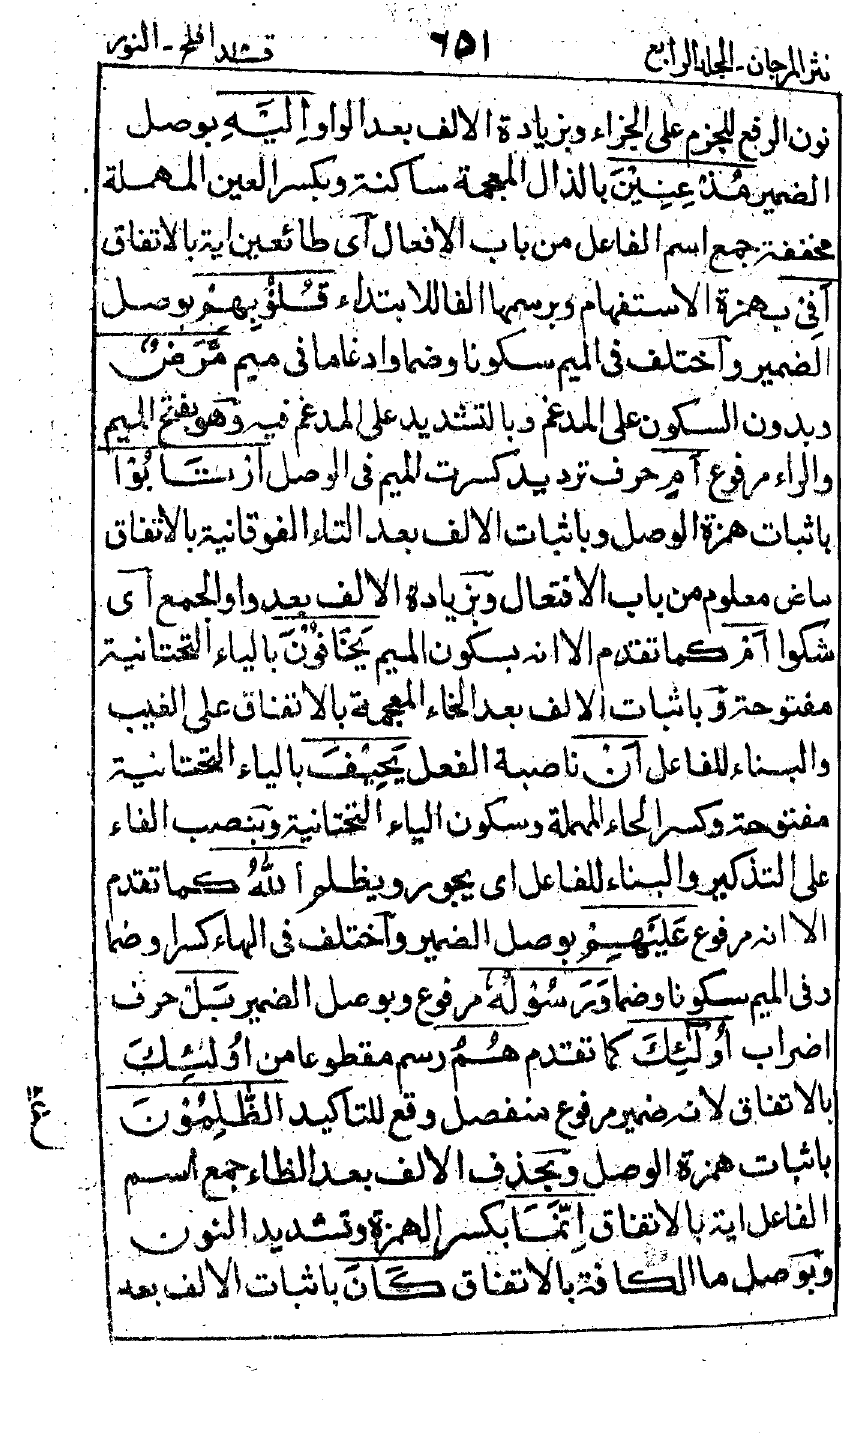 نثر المرجان - المجلد الرابع ٦٥١ قد افلح - النور
نون الرفع للجزم على الجزاء وبزيادة الالف بعد الواو اِلَيْهِ بوصل
الضمير مُذْعِنِيْنَ بالذال المعجمة ساكنة وبكسر العين المهملة
مخففة جمع اسم الفاعل من باب الافعال آى طائعين اية بالاتفاق
اَفِىْ بهمزة الاستفهام وبرسمها الفا للابتداء قُلُوْبِهِمْ بوصل
الضمير وآختلف فى الميم سكونا وضما وادغاما فى ميم مَّرَضٌ
وبدون السكون على المدغم وبالتشديد على المدغم فيه وَهو بفتح الميم
والراء مرفوع اَمِ حرف ترديد كسرت الميم فى الوصل ارْتَابُوْا
باثبات همزة الوصل وباثبات الالف بعد التاء الفوقانية بالاتفاق
ماض معلوم من باب الافتعال وبزيادة الالف بعد واو الجمع آى
شكوا اَمْ كما تقدم الا انه بسكون الميم يَخَافُوْنَ بالياء التحتانية
مفتوحة وَباثبات الالف بعد الخاء المعجمة بالاتفاق على الغيب
والبناء للفاعل اَنْ ناصبة الفعل يَحِيْفَ بالياء التحتانية
مفتوحة وكسر الحاء المهملة وسكون الياء التحتانية وَبنصب الفاء
على التذكير والبناء للفاعل اى يجور ويظلم اللّٰهُ كما تقدم
الا انه مرفوع عَلَيْهِمْ بوصل الضمير وآختلف فى الهاء كسرا وضما
وفى الميم سكونا وضما وَرَسُوْلُهٗ مرفوع وبوصل الضمير بَلْ حرف
اضراب اُولٰٓئِكَ كما تقدم هُمُ رسم مقطوعا من اُولٰئِكَ
بالاتفاق لانه ضمير مرفوع منفصل وقع للتاكيد الظّٰلِمُوْنَ
باثبات همزة الوصل وبحذف الالف بعد الظاء جمع اسم
الفاعل اية بالاتفاق اِنَّمَا بكسر الهمزة وتشديد النون
وبوصل ما الكافة بالاتفاق كَانَ باثبات الالف بعد